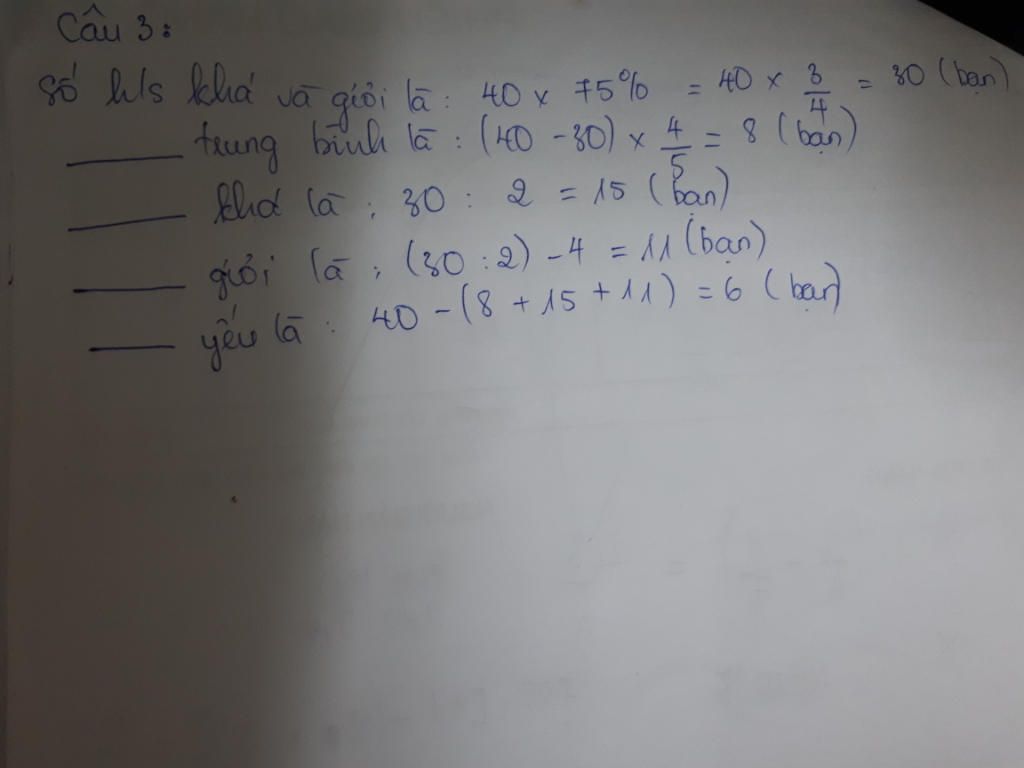 Câu 3:
Số h/s khá và giỏi là: 40 x 75% = 40 x 3/4 = 30 (bạn)
_____ trung bình là: (40 - 30) x 4/5 = 8 (bạn)
_____ khá là: 30 : 2 = 15 (bạn)
_____ giỏi là: (30 : 2) - 4 = 11 (bạn)
_____ yếu là: 40 - (8 + 15 + 11) = 6 (bạn)